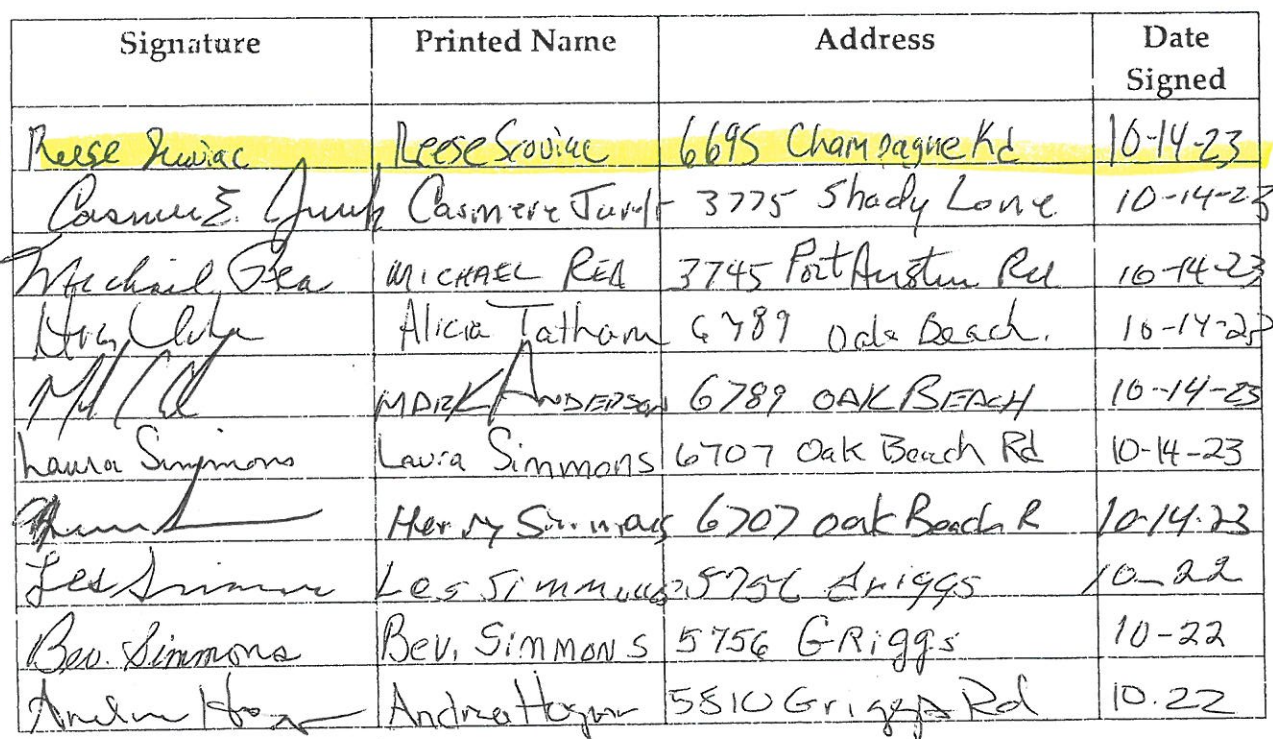 Signature Printed Name Address Date Signed
Reese Scoviac Reese Scoviac 6695 Champagne Rd 10-14-23
Casmere 3775 Shady Lane 10-14-23
Michael Rea MICHAEL REA 3745 Port Austin Rd 10-14-23
Alicia Tatham 6789 Oak Beach. 10-14-23
MARK ANDERSON 6789 OAK BEACH 10-14-23
Laura Simmons Laura Simmons 6707 Oak Beach Rd 10-14-23
Henry Simmons 6707 oak Beach R 10-14-23
Les Simmons Les Simmons 5756 Griggs 10-22
Bev. Simmons Bev. Simmons 5756 GRiggs 10-22
Andrea Hogan 5810 Griggs Rd 10.22